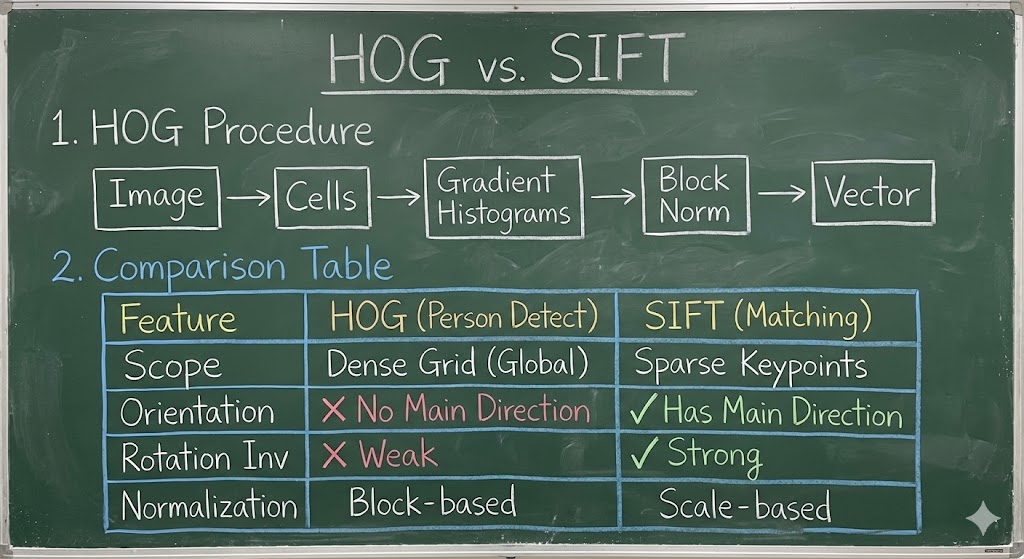 HOG vs. SIFT
1. HOG Procedure
Image → Cells → Gradient Histograms → Block Norm → Vector
2. Comparison Table
Feature HOG (Person Detect) SIFT (Matching)
Scope Dense Grid (Global) Sparse Keypoints
Orientation ✗ No Main Direction ✓ Has Main Direction
Rotation Inv ✗ Weak ✓ Strong
Normalization Block-based Scale-based